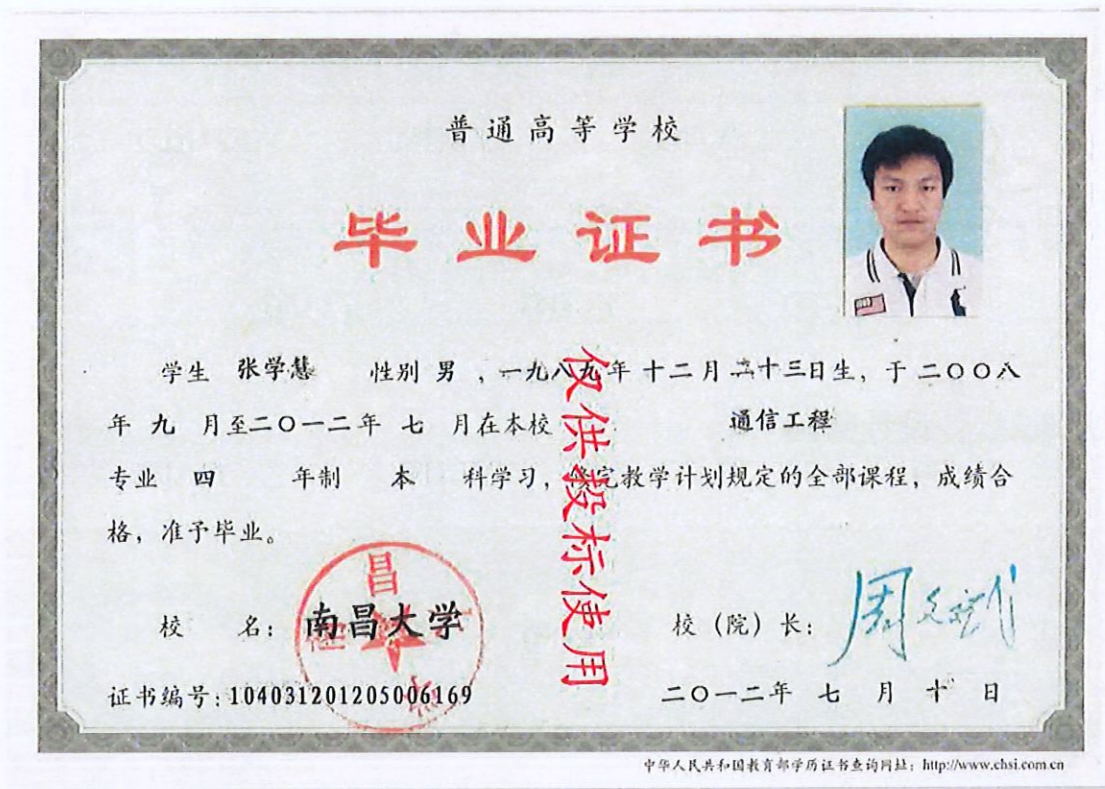 普通高等学校
毕业证书
学生 张学慧 性别 男 ，一九八九年 十二月 二十三日生，于 二〇〇八
年 九 月至二〇一二年 七 月在本校 通信工程
专业 四 年制 本 科学习，修完教学计划规定的全部课程，成绩合
格，准予毕业。
仅供投标使用
校 名：南昌大学
校（院）长：
证书编号：104031201205006169
二〇一二年 七 月 十 日
中华人民共和国教育部学历证书查询网址：http://www.chsi.com.cn